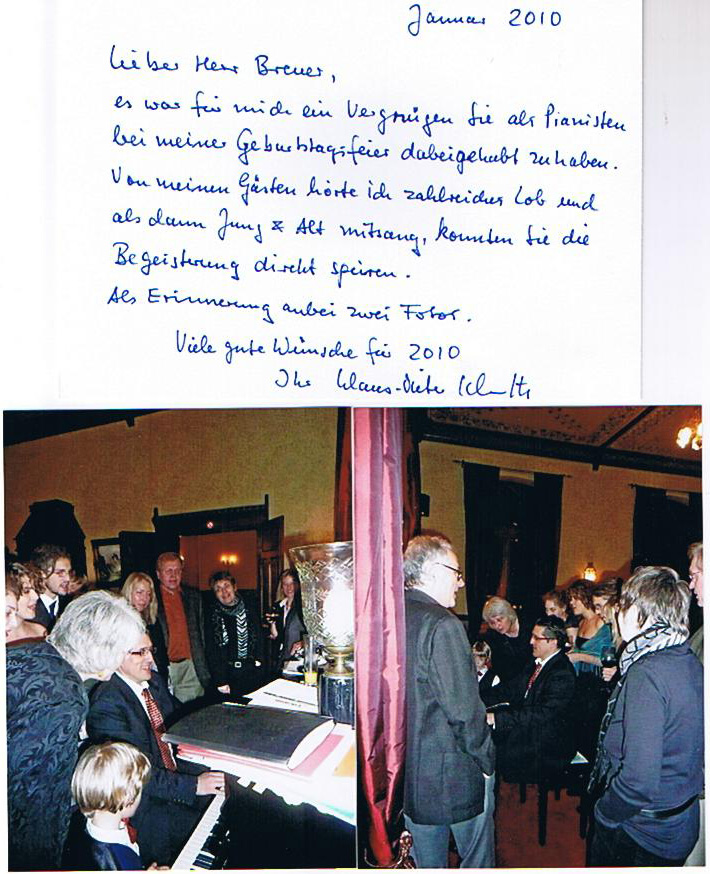 Januar 2010
Lieber Herr Breuer,
es war für mich ein Vergnügen Sie als Pianisten
bei meiner Geburtstagsfeier dabeigehabt zu haben.
Von meinen Gästen hörte ich zahlreiches Lob und
als dann Jung & Alt mitsang, konnten Sie die
Begeisterung direkt spüren.
Als Erinnerung anbei zwei Fotos.
Viele gute Wünsche für 2010
Ihr Klaus-Dieter